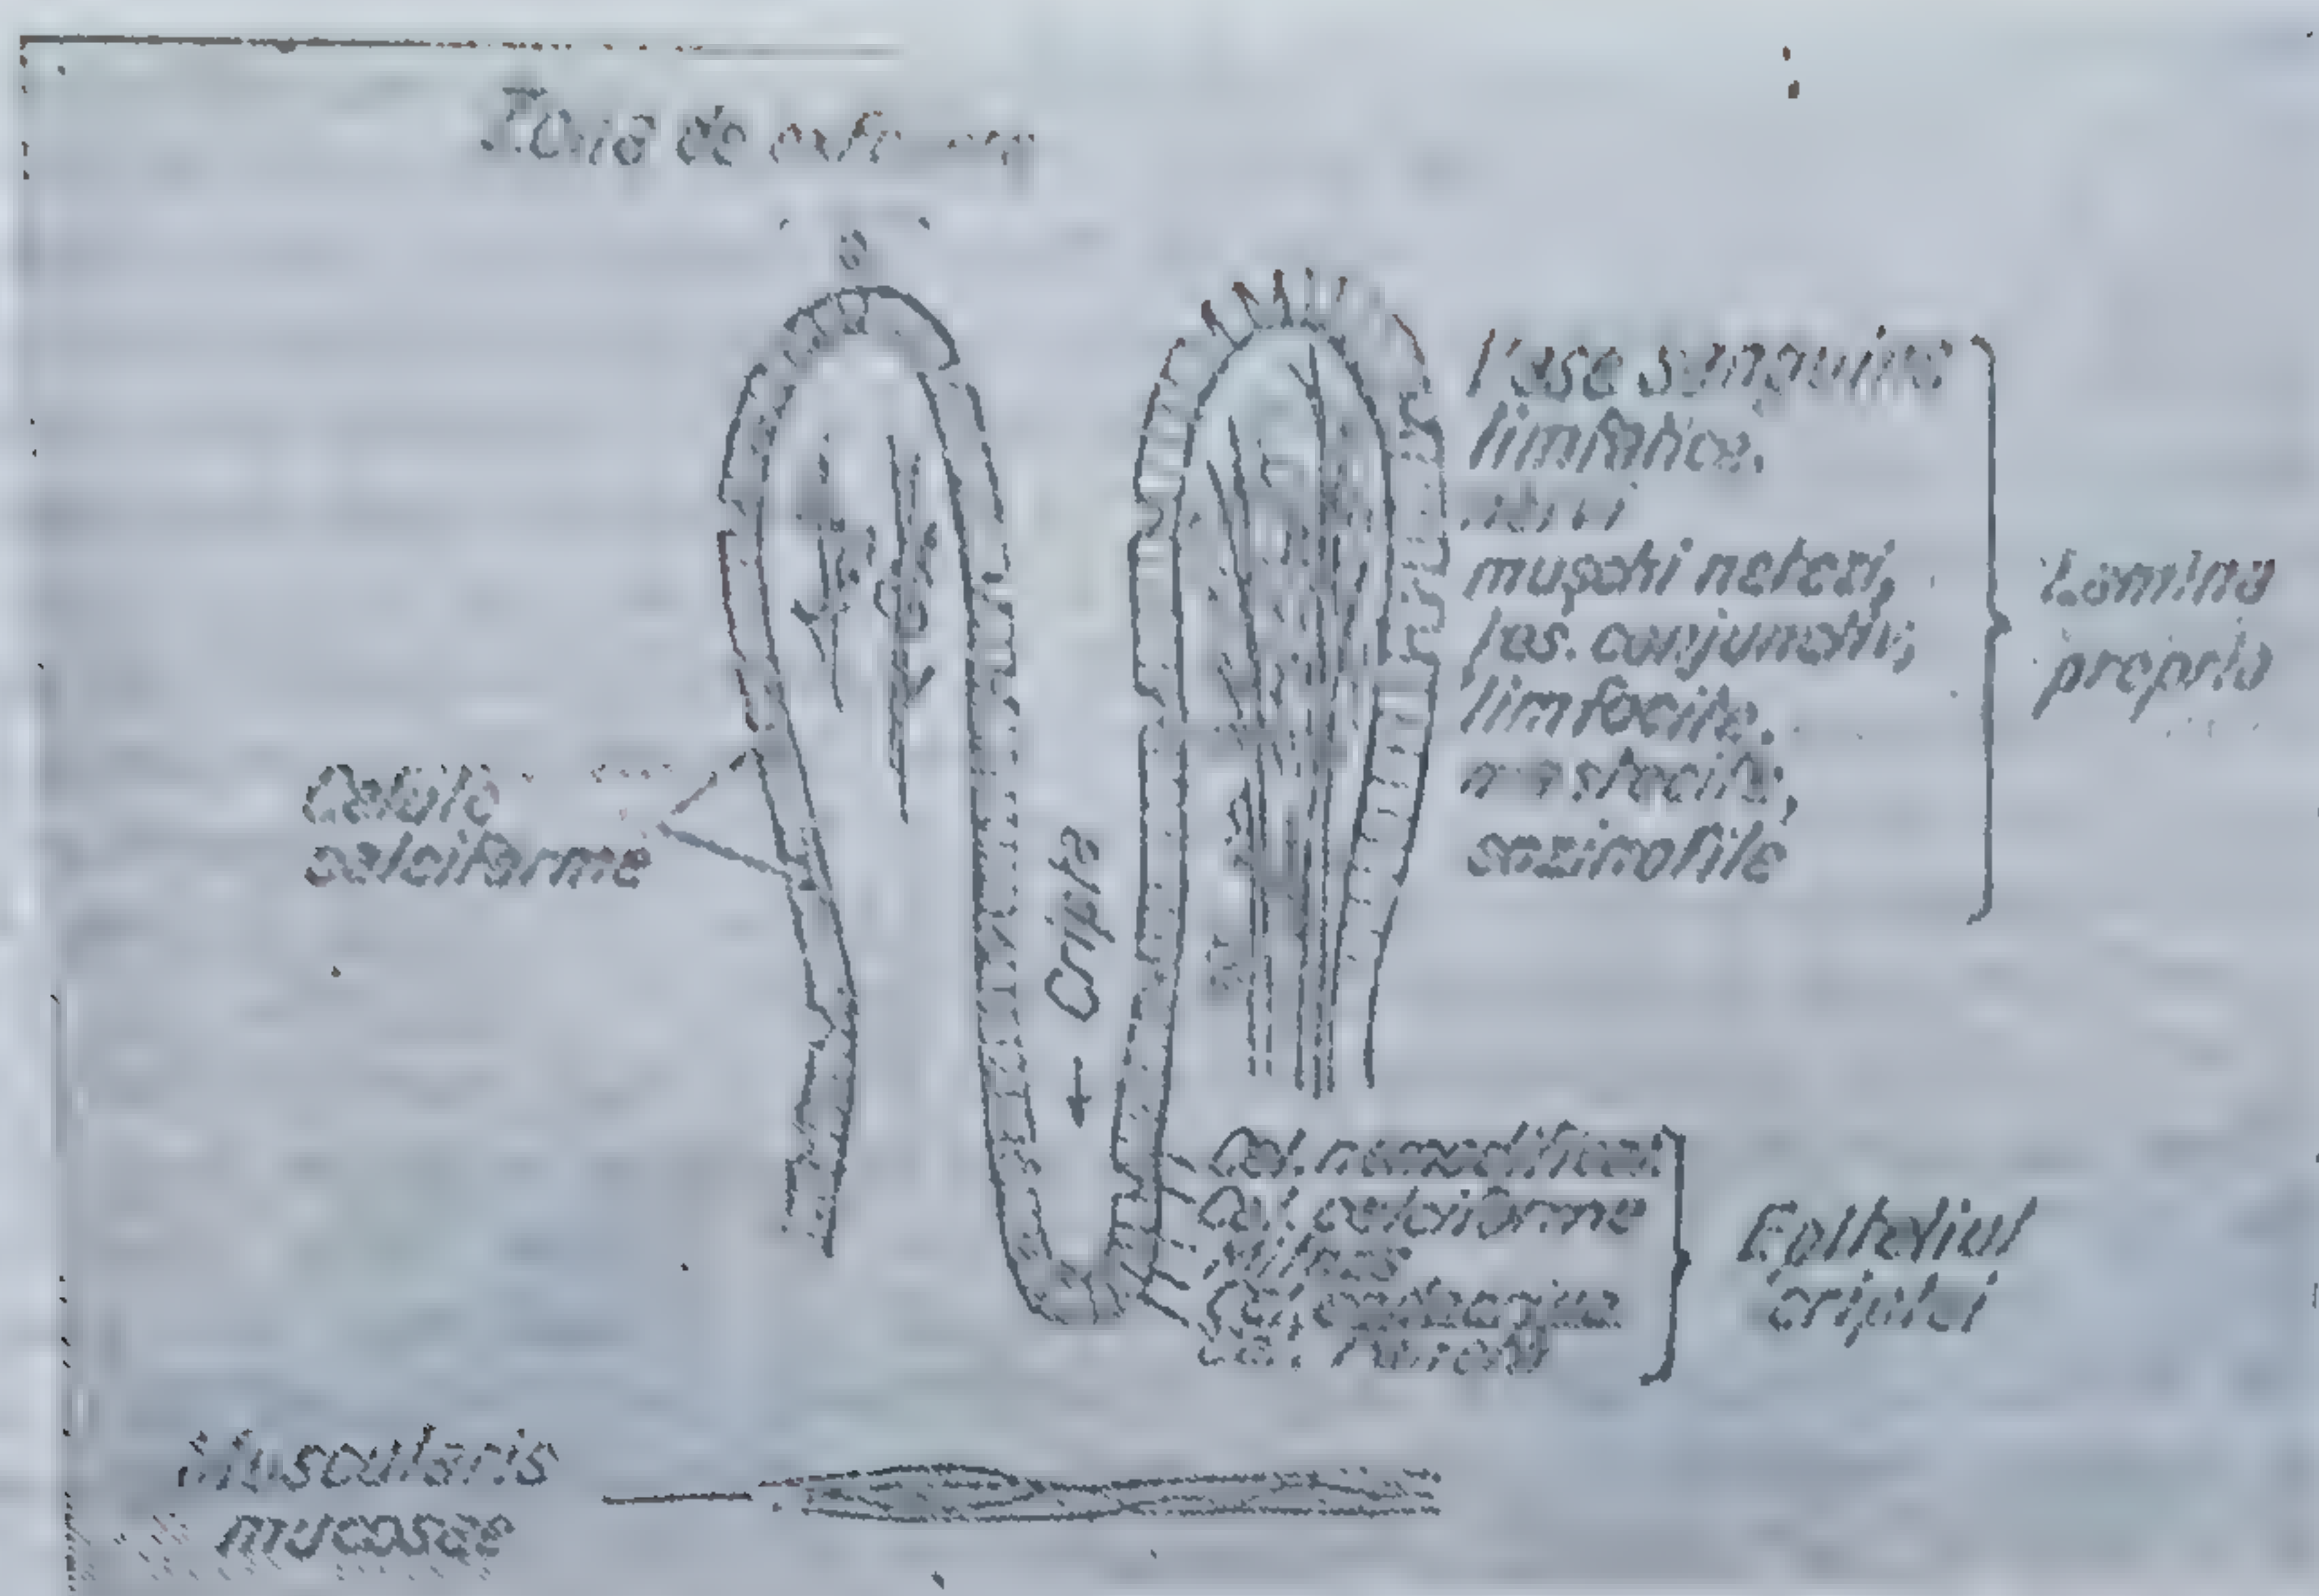 Zona de
Vase sanguine
limfatice,
nervi
mușchi netezi,
țes. conjunctiv,
limfocite,
mastocite,
eozinofile
Lamina
propria
Celule
caliciforme
Cripta
Cel. nemodificate
Cel. caliciforme
Cel.
Cel. Paneth
Epiteliul
criptei
Muscularis
mucosae